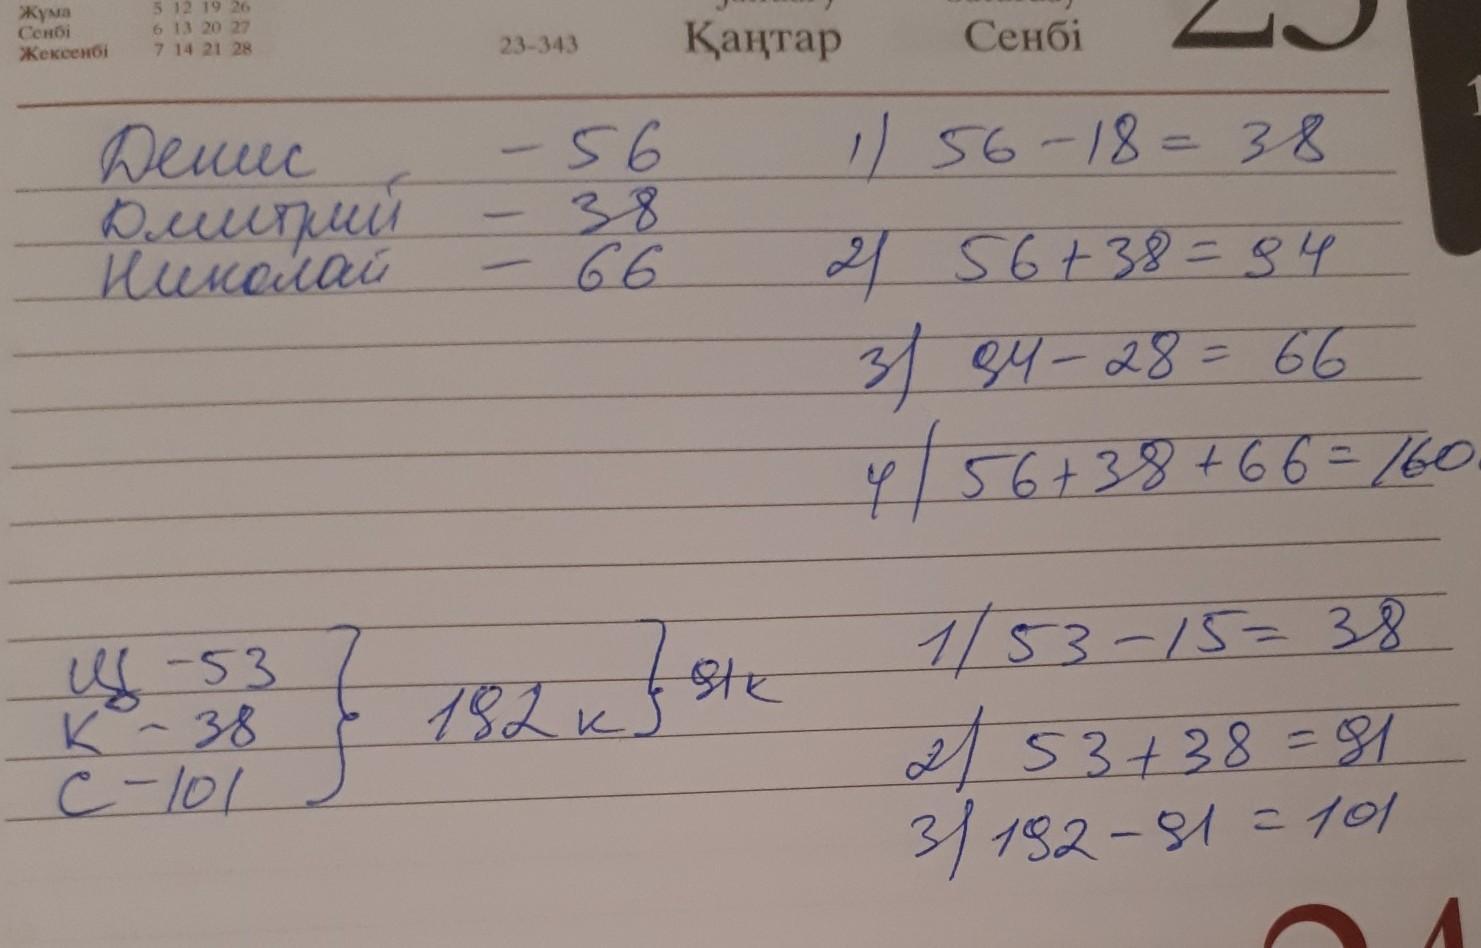 Жұма 5 12 19 26
Сенбі 6 13 20 27
Жексенбі 7 14 21 28
23-343
Қаңтар
Сенбі
Денис - 56
Дмитрий - 38
Николай - 66
1) 56 - 18 = 38
2) 56 + 38 = 94
3) 94 - 28 = 66
4) 56 + 38 + 66 = 160
Щ - 53
К - 38
С - 101
192 к
91 к
1) 53 - 15 = 38
2) 53 + 38 = 91
3) 192 - 91 = 101